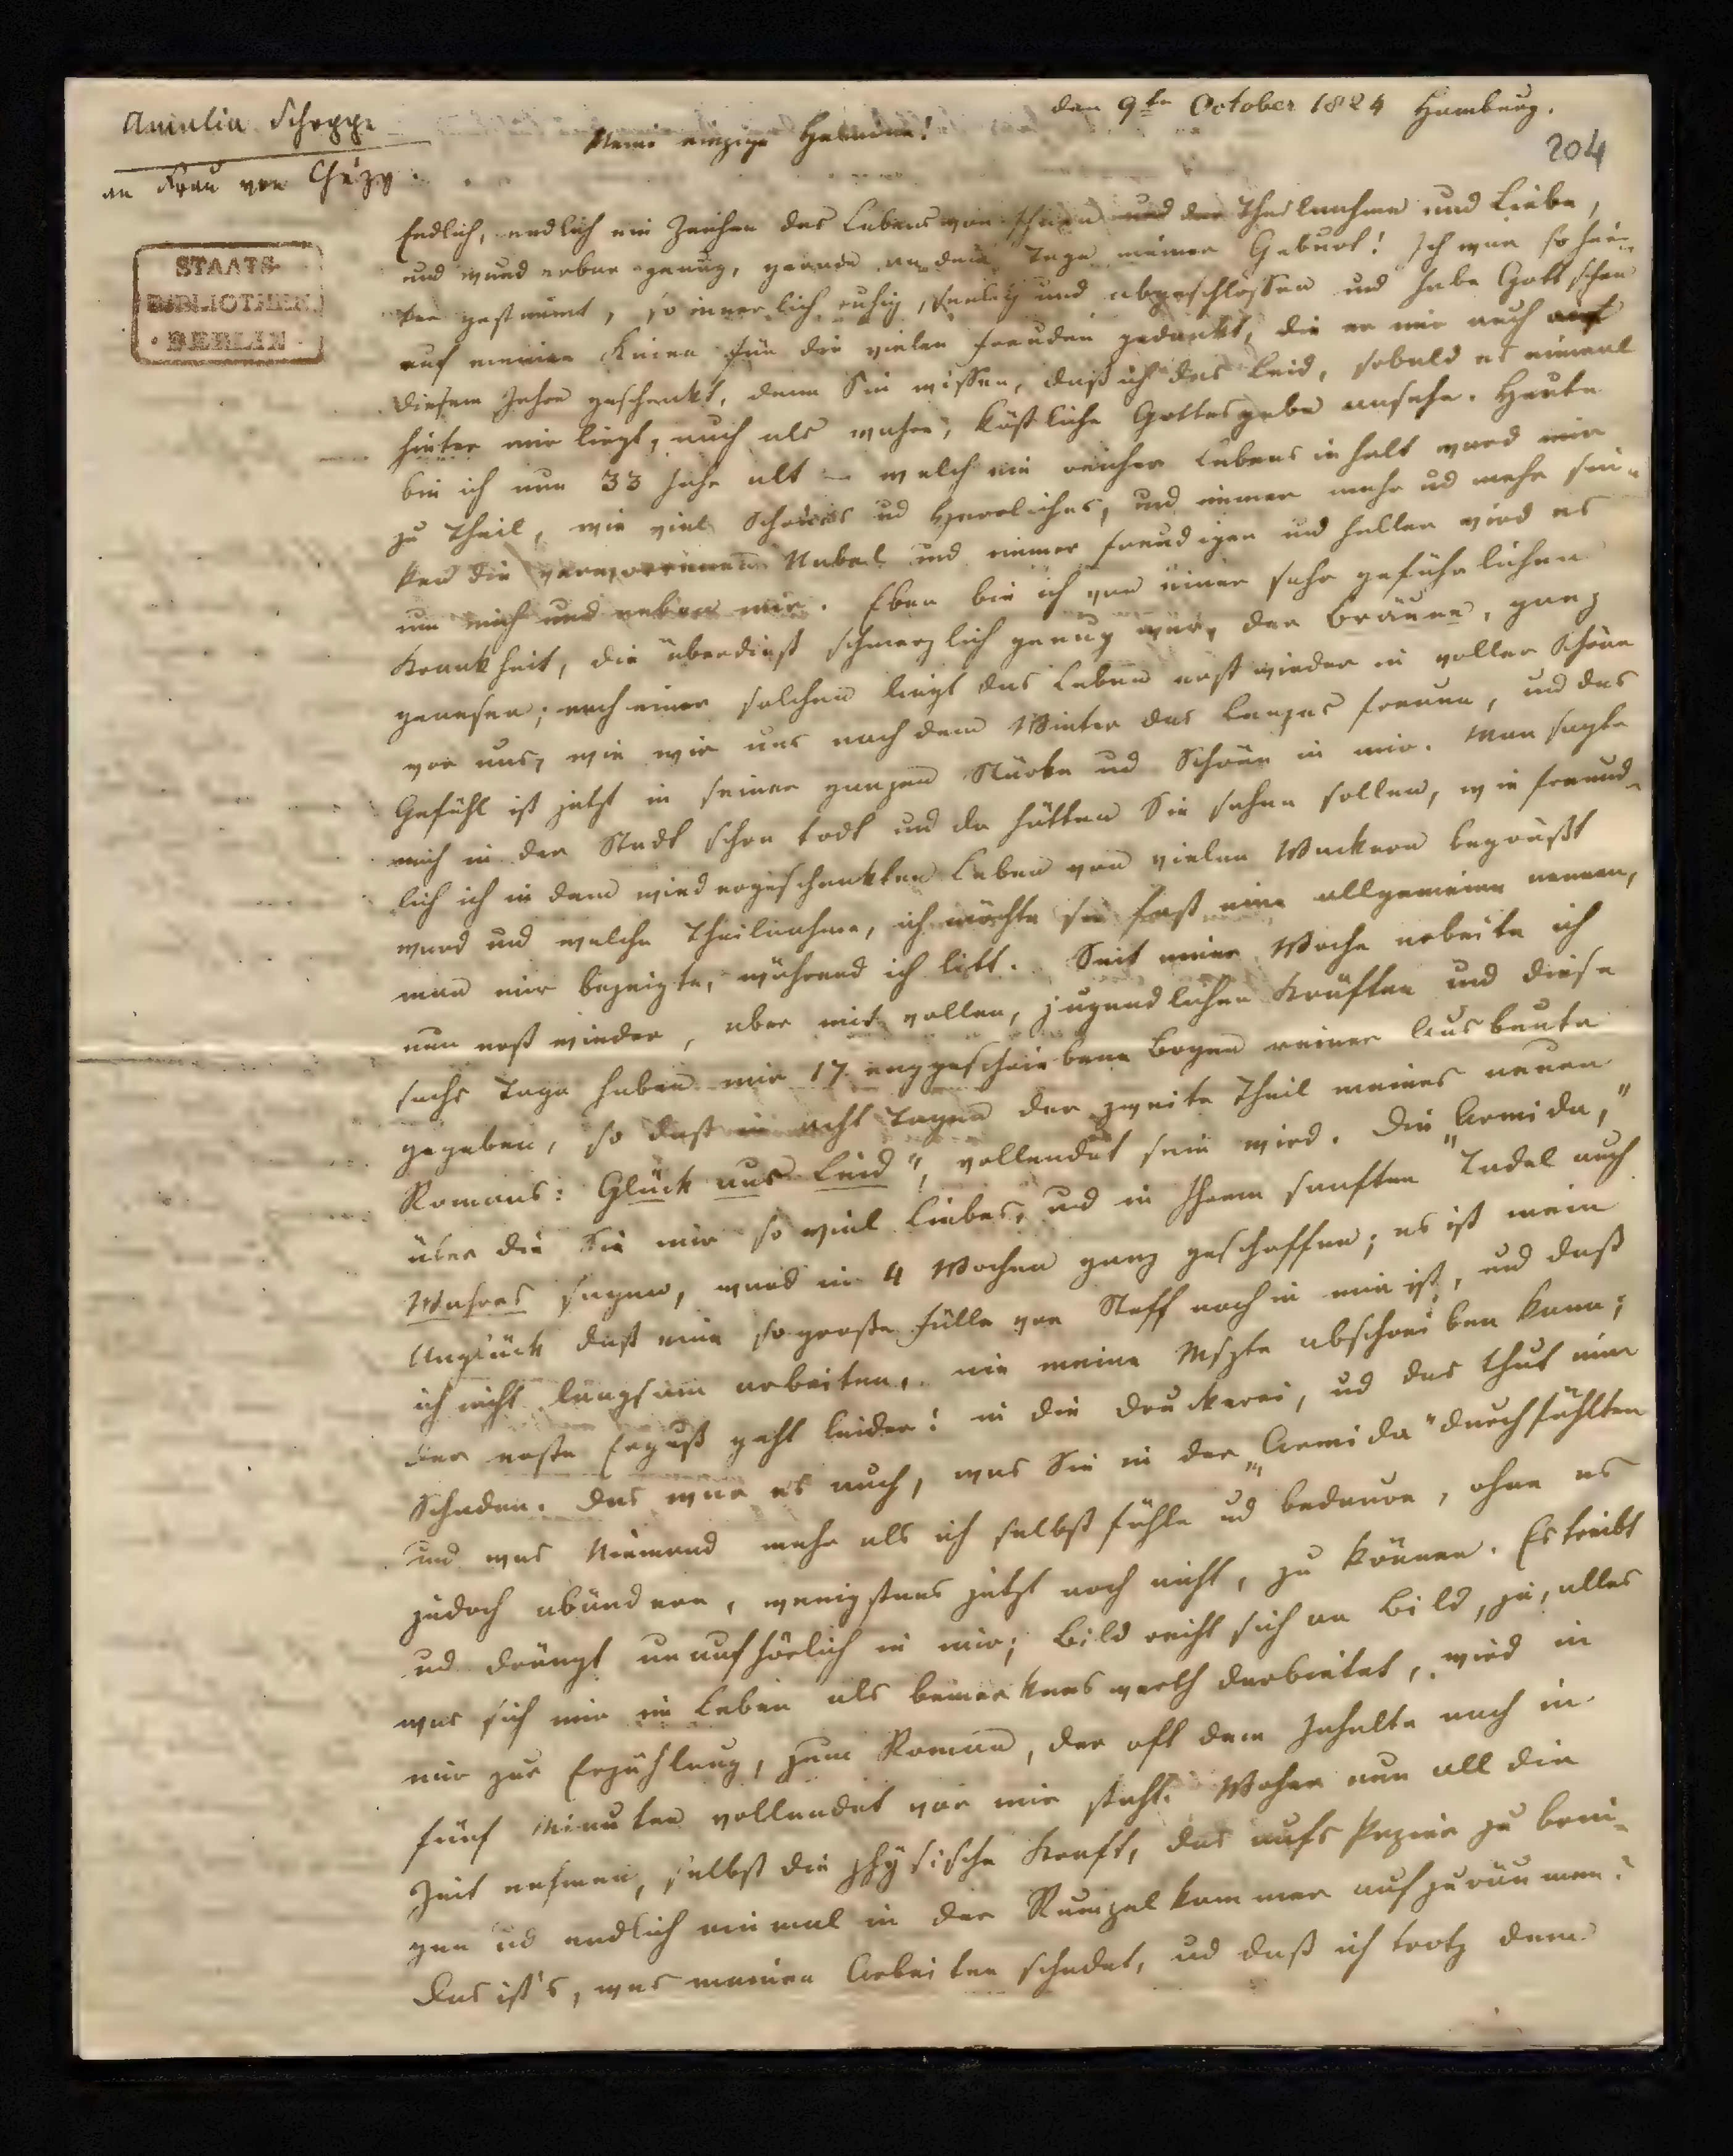 Amalia Schoppe
an Frau von Chézy.
den 9ten October 1824 Hamburg.
204
Meine einzige Helmina!
STAATS-
BIBLIOTHEK
· BERLIN ·
Endlich, endlich ein Zeichen des Lebens von Ihnen und der Theilnahme und Liebe,
und wunderbar genug, gerade an dem Tage meiner Geburt! Ich war so hei-
ter gestimmt, so innerlich ruhig, und abgeschlossen und habe Gott schon
auf meinen Knieen für die vielen Freuden gedankt, die er mir auch
diesem Jahre geschenkt, denn Sie wissen, daß ich das Leid, sobald es einmal
hinter mir liegt, auch als wahre, köstliche Gottesgabe ansehe. Heute
bin ich nun 33 Jahr alt – welch ein reicher Lebensinhalt ward mir
zu Theil, wie viel Schönes ud Herrliches, und immer mehr ud mehr sin-
ken die verworrenen Nebel und immer freudiger und heller wird es
um mich und neben mir. Eben bin ich von einer sehr gefährlichen
Krankheit, die überdieß schmerzlich genug war, der Bräune, ganz
genesen; nach einer solchen liegt das Leben erst wieder in voller Schöne
vor uns, wie wir uns nach dem Winter des Lenzes freuen, und das
Gefühl ist jetzt in seiner ganzen Stärke ud Schöne in mir. Man sagte
mich in der Stadt schon todt und da hätten Sie sehen sollen, wie freund-
lich ich in dem wiedergeschenkten Leben von vielen Wackern begrüßt
ward und welche Theilnahme, ich möchte sie fast eine allgemeine nennen,
man mir bezeigte, während ich litt. Seit einer Woche arbeite ich
nun erst wieder, aber mit vollen, jugendlichen Kräften und diese
sechs Tage haben mir 17 enggeschriebene Bogen reiner Ausbeute
gegeben, so daß in acht Tagen der zweite Theil meines neuen
Romans: Glück aus Leid", vollendet sein wird. Die „Armida,"
über die Sie mir so viel Liebes, und in Ihrem sanften Tadel auch
Wahres sagen, ward in 4 Wochen ganz geschaffen; es ist mein
Unglück daß eine so große Fülle von Stoff noch in mir ist, und daß
ich nicht langsam arbeiten, nie meine Mspte abschreiben kann;
der erste Erguß geht leider! in die Druckerei, ud das thut mir
Schaden. Das war es auch, was Sie in der „Armida" durchfühlten
und was Niemand mehr als ich selbst fühle ud bedaure, ohne es
jedoch abändern, wenigstens jetzt noch nicht, zu können. Es treibt
ud drängt unaufhörlich in mir; Bild reiht sich an Bild, ja, alles
was sich mir im Leben als bemerkenswerth darbietet, wird in
mir zur Erzählung, zum Roman, der oft dem Inhalte nach in
fünf Minuten vollendet vor mir steht. Woher nun all die
Zeit nehmen, selbst die physische Kraft, das aufs Papier zu brin-
gen ud endlich einmal in der Rumpelkammer aufzuräumen?
Das ist's, was meinen Arbeiten schadet, ud daß ich trotz dem